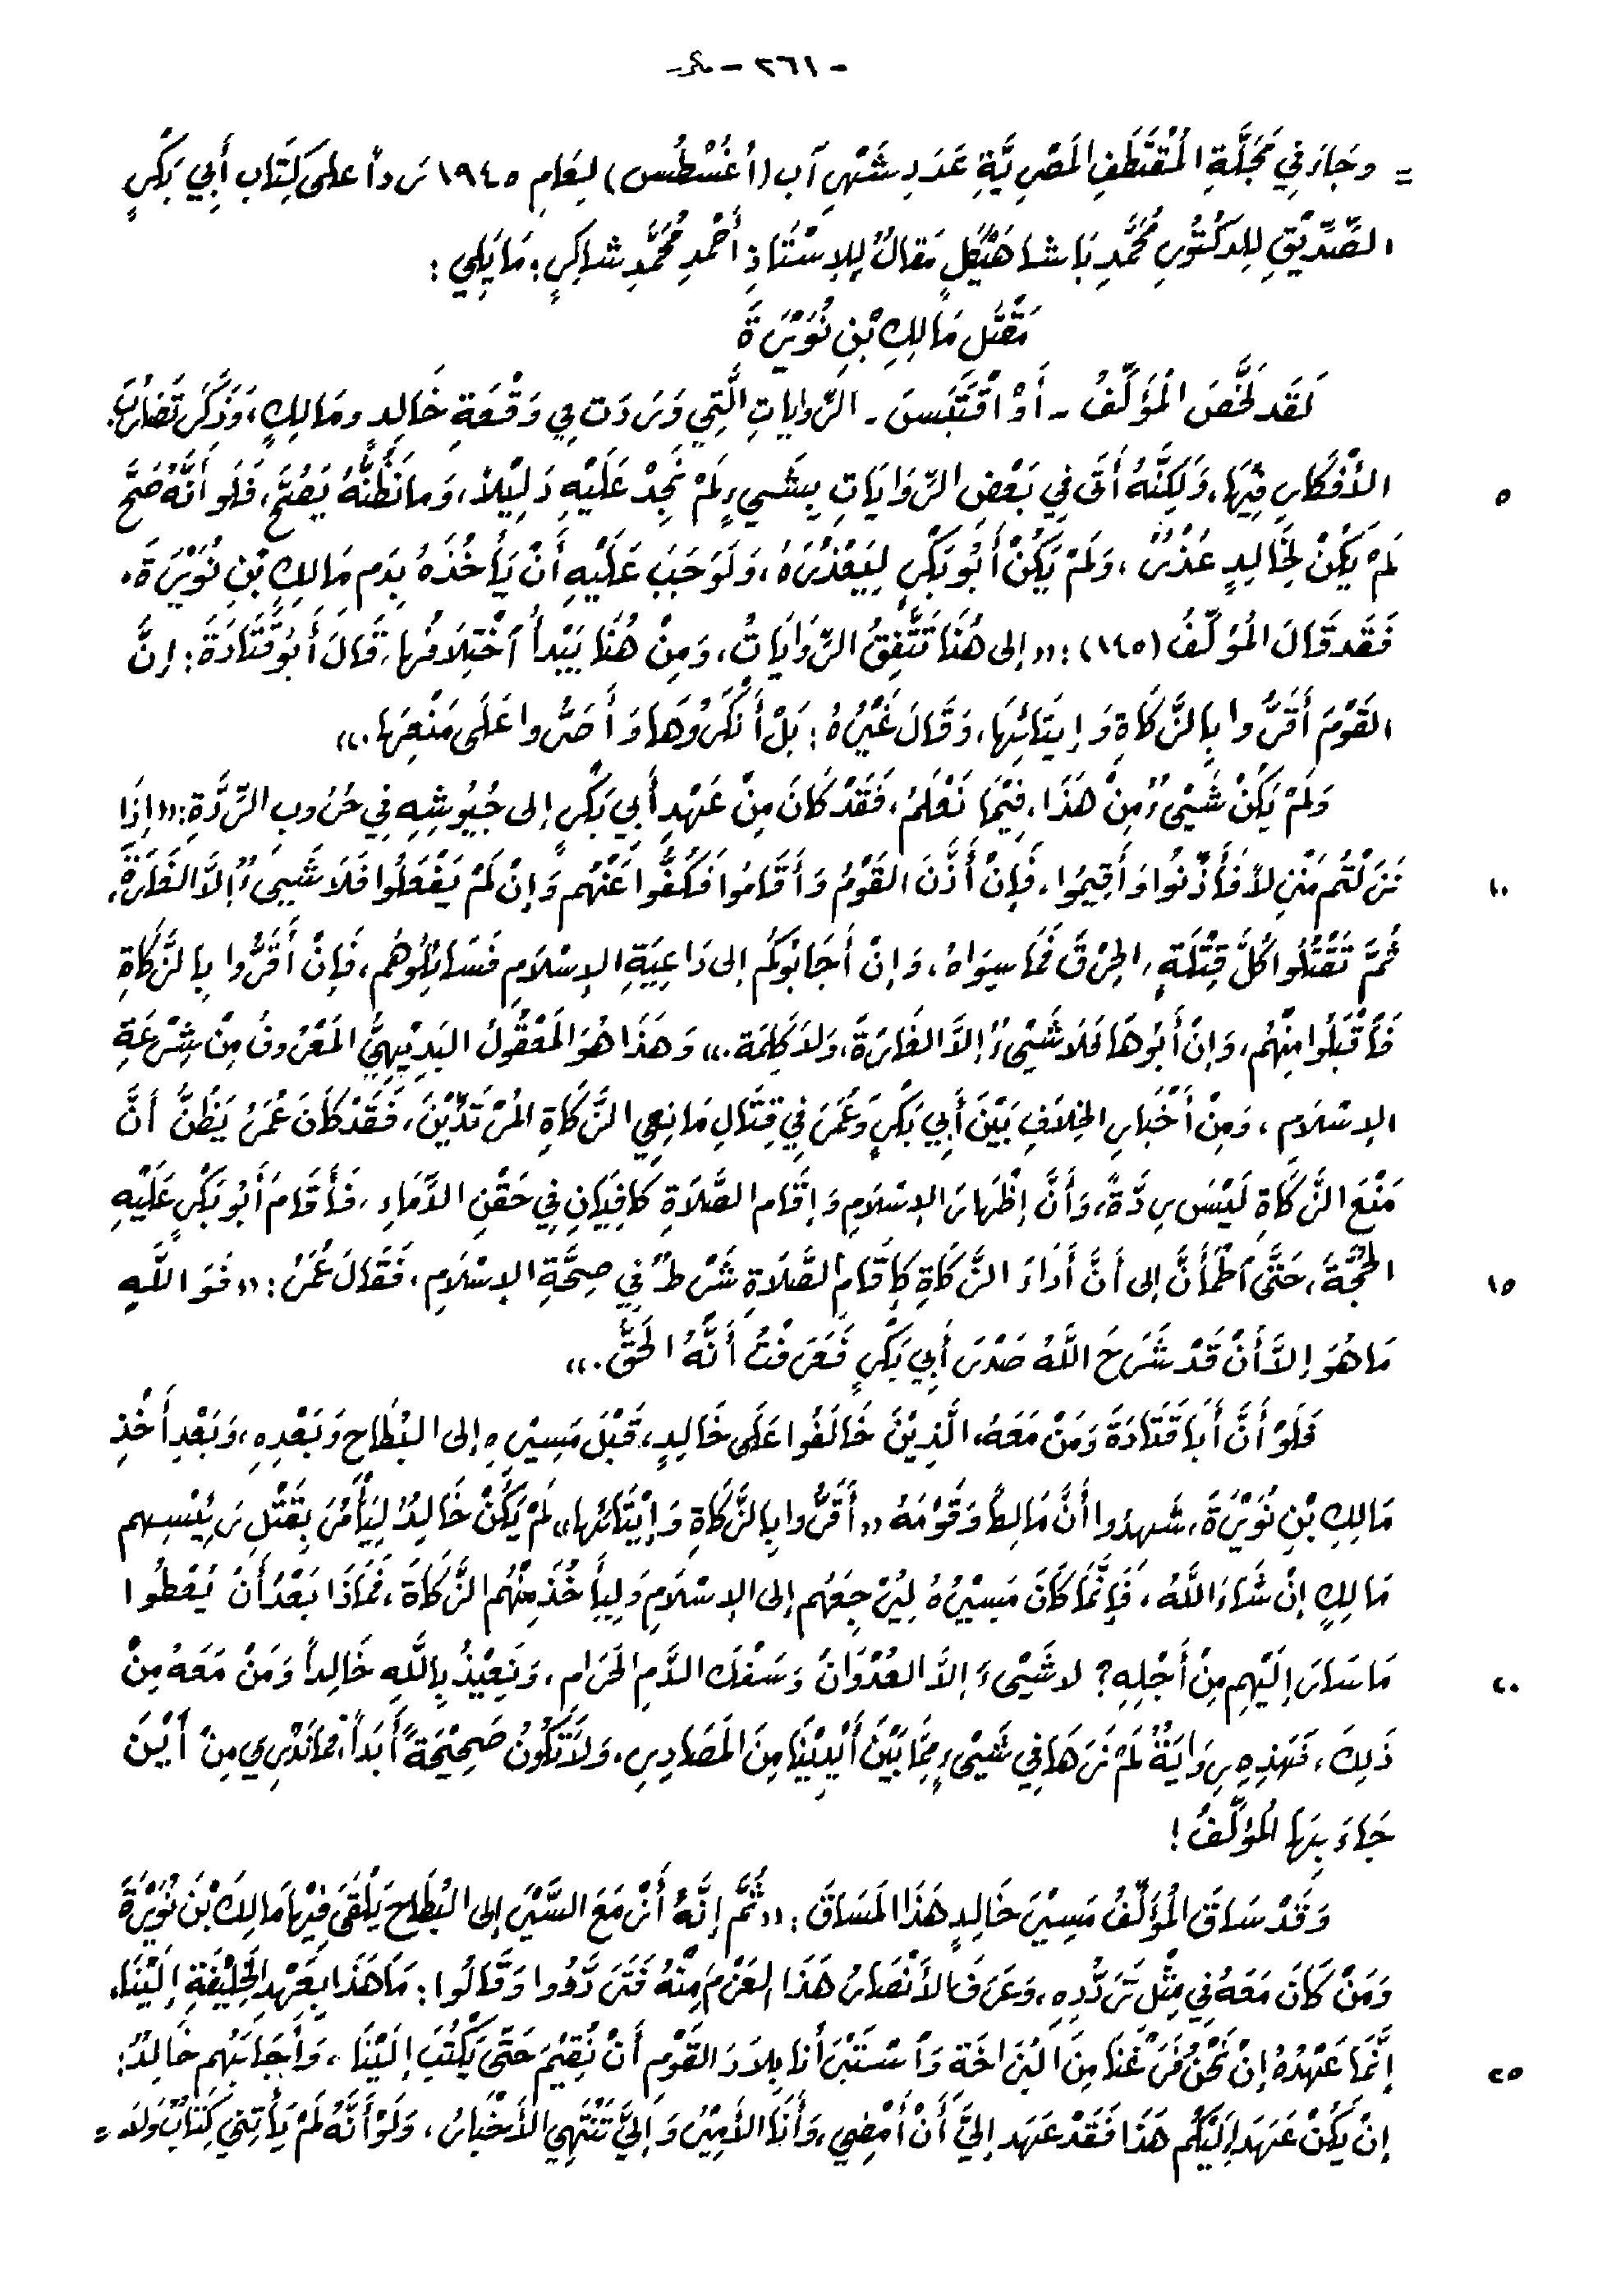 - ٢٦١ -
= وجَاءَ فِي مَجَلَّةِ المُقْتَطَفِ المَصْرِيَّةِ عَدَدِ شَهْرِ آب (أغُسْطُس) لِعَامِ ١٩٤٥ رَداً على كِتَاب أَبِي بَكْرٍ
الصِّدِّيْقِ لِلدكْتُورِ مُحَمَّدِ بَاشا هَيْكَلٍ مَقالٌ لِلاِسْتَاذِ أَحْمَدِ مُحَمَّدِ شاكِرٍ: مَا يَلِي :
مَقْتَلِ مَالِكِ بْنِ نُوَيْرَةَ
لَقَد لَخَّصَ المُؤَلِّفُ - أَوْ اقْتَبَسَ - الرِّوايَاتِ الَّتِي وَرَدَت فِي وَقْعَةِ خَالِدٍ ومَالِكٍ، وَذَكَرَ تَضَارُبَ
الأَفْكَارِ فِيْهَا، وَلَكِنَّهُ أَتَى فِي بَعْضِ الرِّوَايَاتِ بِشَيءٍ لَمْ نَجِدْ عَلَيْهِ دَلِيْلاً، وَمانَظُنُّهُ يَصُحَّ، فَلَو أَنَّهُ صَحَّ
٥
لَمْ يَكُنْ لِخَالِدٍ عُذْرٌ، وَلَمْ يَكُنْ أَبُو بَكْرٍ لِيَعْذُرَهُ، وَلَوَجَبَ عَلَيْهِ أَنْ يَأخُذَهُ بِدَمِ مَالِكِ بْنِ نُوَيْرَةَ.
فَقَد قَالَ المُؤَلِّفُ (١٤٥): «إلى هُنَا تَتَّفِقُ الرِّوَايَاتُ، وَمِنْ هُنَا يَبْدأُ اخْتِلاَفُها، قَالَ أَبُو قَتَادَةَ: إنَّ
القَوْمَ أَقَرُّوا بِالزَّكَاةِ وَإيتَائِهَا، وَقَالَ غَيْرُهُ: بَلْ أَنْكَرُوهَا وَأَصَرُّوا عَلَى مَنْعِهَا.»
وَلَمْ يَكُنْ شَيْئٌ مِنْ هَذَا، فِيْمَا نَعْلَمُ، فَقَدْ كَانَ مِنْ عَهْدِ أَبِي بَكْرٍ إلى جُيُوشِهِ فِي حُرُوبِ الرِّدَّةِ: «إذَا
نَزَلْتُم مَنْزِلاً فَأَذِّنُوا وَأَقِيمُوا، فَإنْ أَذَّنَ القَوْمُ وَأَقَامُوا فَكُفُّوا عَنْهُم وَإنْ لَمْ يَفْعَلُوا فَلاَ شَيئٌ إلاَّ الغَارَةُ،
١٠
ثُمَّ تَقْتُلُوا كُلَّ قِتْلَةٍ، الحَرْقَ فَمَا سِوَاهُ، وَإنْ أَجَابُوكُم إلى دَاعِيَةِ الإسْلاَمِ فَسَائِلُوهُم، فَإنْ أَقَرُّوا بِالزَّكَاةِ
فَأَقْبَلُوا مِنْهُم، وَإنْ أَبُوهَا فَلاَ شَيْئٌ إلاَّ الغَارَةَ، وَلاَ كَلِمَة.» وَهَذَا هُوَ المَعْقُولُ البَدِيْهِيُّ المَعْرُوفُ مِنْ شِرْعَةِ
الإسْلاَمِ، وَمِنْ أَخْبَارِ الخِلاَفِ بَيْنَ أَبِي بَكْرٍ وَعُمَرَ فِي قِتَالِ مَانِعِي الزَّكَاةِ المُرْتَدِّيْنَ، فَقَدْ كَانَ عُمَرُ يَظُنُّ أنَّ
مَنْعَ الزَّكَاةِ لَيْسَ رِدَّةً، وَأَنَّ إظْهَارَ الإسْلاَمِ وَإقَامِ الصَّلاَةِ كَافِيَانِ فِي حَقْنِ الدَّمَاءِ، فَأَقَامَ أَبُو بَكْرٍ عَلَيْهِ
الحُجَّةَ، حَتَّى اطْمَأَنَّ إلى أَنَّ أَدَاءَ الزَّكَاةِ كَإقَامِ الصَّلاَةِ شَرْطٌ فِي صِحَّةِ الإسْلاَمِ، فَقَالَ عُمَرُ: «فَوَاللَّهِ
١٥
مَا هُوَ إلاَّ أَنْ قَدْ شَرَحَ اللَّهُ صَدْرَ أَبِي بَكْرٍ فَعَرَفْتُ أَنَّهُ الحَقَّ.»
فَلَوْ أَنَّ أَبَا قَتَادَةَ وَمَنْ مَعَهُ، الَّذِيْنَ خَالَفُوا عَلَى خَالِدٍ، قَبْلَ مَسِيْرِهِ إلى البُطَاحِ وَبَعْدِهِ، وَبَعْدِ أَخْذِ
مَالِكِ بْنِ نُوَيْرَةَ، شَهِدُوا أَنَّ مَالِكاً وَقَوْمَهُ «أَقَرُّوا بِالزَّكَاةِ وَإيْتَائِها» لَمْ يَكُنْ خَالِدٌ لِيَأْمُرَ بِقَتْلِ رَئِيْسِهِم
مَالِكٍ إنْ شَاءَ اللَّهُ، فَإنَّمَا كَانَ مَسِيْرُهُ لِيُرْجِعَهُم إلى الإسْلاَمِ وَلِيَأخُذَ مِنْهُم الزَّكَاةَ، فَمَاذَا بَعْدَ أَنْ يُعْطُوا
مَا سَارَ إلَيْهِم مِنْ أَجْلِهِ؟ لا شَيْئَ إلاَّ العُدْوَانَ وَسَفْكَ الدَّمِ الحَرَامِ، وَنُعِيْذُ بِاللَّهِ خَالِداً وَمَنْ مَعَهُ مِنْ
٢٠
ذَلِكَ، فَهَذِهِ رِوَايَةٌ لَمْ نَرَهَا فِي شَيْئٍ مِمَّا بَيْنَ أَيْدِيْنَا مِنَ المَصَادِرِ، وَلاَ تَكُونُ صَحِيْحَةً أَبَداً، فَمَا نَدْرِي مِنْ أَيْنَ
جَاءَ بِهَا المُؤَلِّفُ!
وَقَدْ سَاقَ المُؤَلِّفُ مَسِيْرَ خَالِدٍ هَذَا المَسَاقَ: «ثُمَّ إنَّهُ أَزْمَعَ السَّيْرَ إلى البُطَاحَ يَلْقَى فِيْهَا مَالِكَ بْنَ نُوَيْرَةَ
وَمَنْ كَانَ مَعَهُ فِي مِثْلِ تَرَدُّدِهِ، وَعَرَفَ الأَنْصَارُ هَذَا العَزْمَ مِنْهُ فَتَرَدَّدُوا وَقَالُوا: مَا هَذَا بِعَهْدِ الخَلِيْفَةِ إلَيْنَا،
إنَّمَا عَهْدُهُ إنْ نَحْنُ فَرَغْنَا مِنَ البُزَاخَة وَاسْتَبْرَأنا بِلاَدَ القَوْمِ أَنْ نُقِيْمَ حَتَّى يَكْتُبَ إلَيْنَا، وَأَجَابَهُم خَالِدٌ:
٢٥
إنْ يَكُنْ عَهَدَ إلَيْكُم هَذَا فَقَدْ عَهَد إلَيَّ أَنْ أَمْضِي، وَأَنَا الأَمِيْرُ وَإلَيَّ تَنْتَهِي الأَخْبَارُ، وَلَوْ أَنَّهُ لَمْ يَأتِنِي كِتَابٌ وَلاَ =